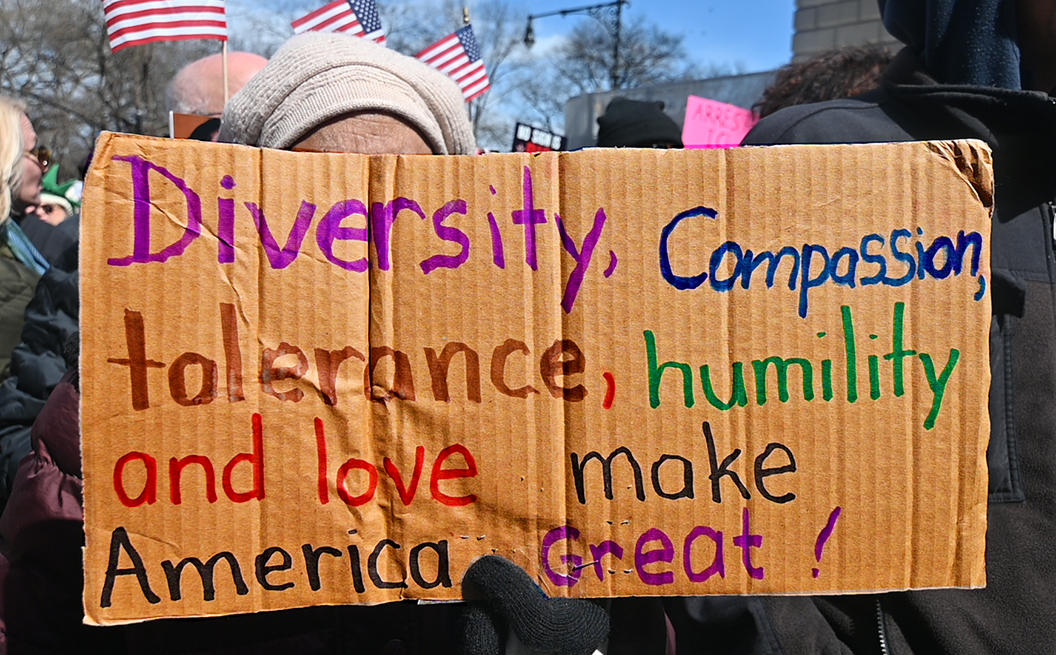 Diversity, Compassion,
tolerance, humility
and love make
America Great!
ARREST